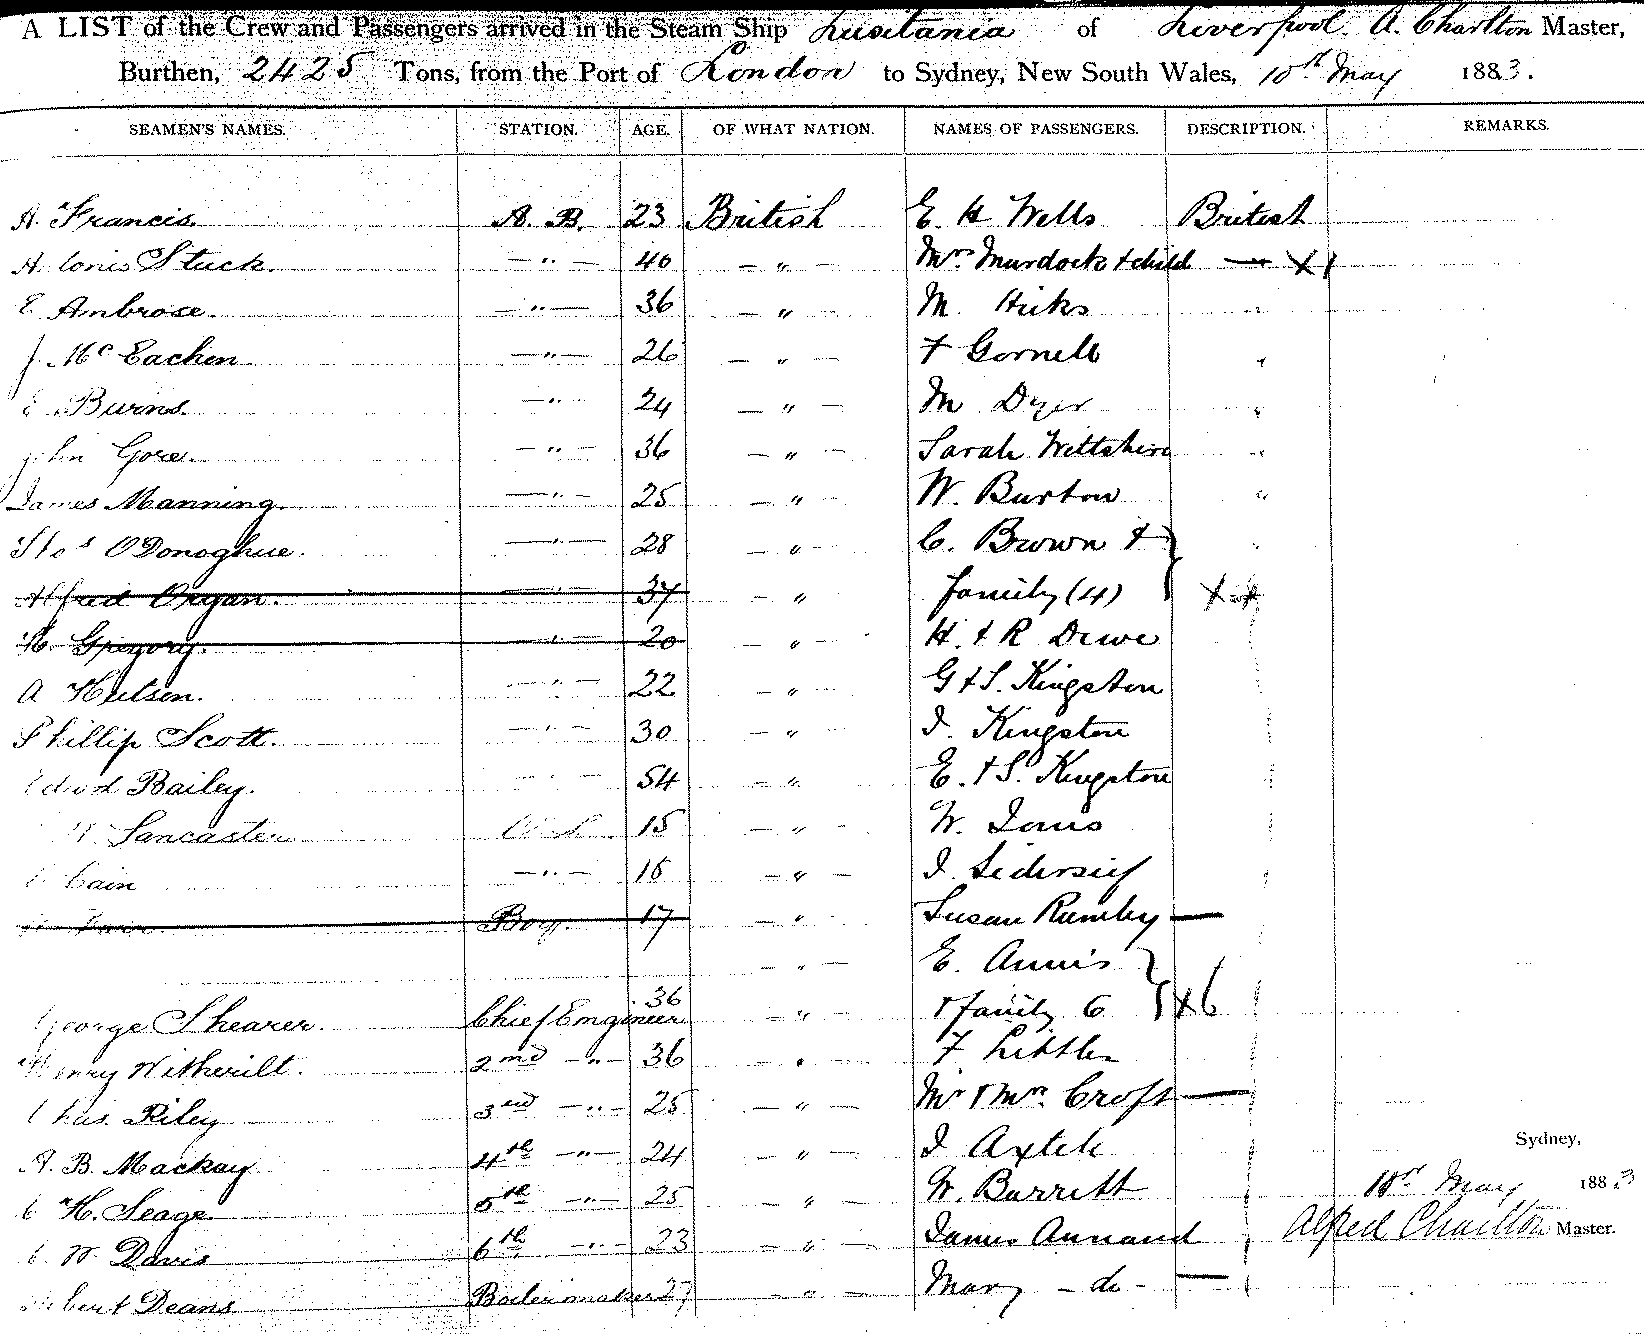 A LIST of the Crew and Passengers arrived in the Steam Ship Lusitania of Liverpool. A. Charlton Master,
Burthen, 2425 Tons, from the Port of London to Sydney, New South Wales, 10th May 1883.
SEAMEN'S NAMES. STATION. AGE. OF WHAT NATION. NAMES OF PASSENGERS. DESCRIPTION. REMARKS.
A. Francis. A. B. 23 British E. H Wells British
Stuck. — " — 40 — " — Mrs Murdock + child — X1
E Ambrose. — " — 36 — " — M. Hicks "
J. McEachen — " — 26 — " — F Gornell "
Burns. — " 24 — " — M Dyer "
John Gore. — " — 36 — " — Sarah Wiltshire "
James Manning. — " — 25 — " W. Burton "
Thos O'Donoghue. — " — 28 — " — C. Brown + "
Alfred Organ. — " — 37 — " family (4) X
Gregory. — " — 20 " — H. + R Dewe
A Hutson. — " — 22 — " — G + S. Kingston
Phillip Scott. " — 30 — " J. Kingston
Edwd Bailey. " — 54 — " E. + S. Kingston
Lancaster 15 — " — W. Jones
Cain — " — 16 — " —
Boy. 17 — " Susan Rumley —
— " — E. Annis
George Shearer. Chief Engineer 36 — " — + family 6 X6
Henry Witherilt. 2nd — " — 36 — " — F Littler
Chas. Riley 3rd — " — 25 — " — Mr + Mrs. Croft —
A. B. Mackay 4th — " — 24 — " — J Axtell
Sydney,
C H. Seage 5th — " — 25 " — W. Barrett 10th May 1883
W Davis 6th — " — 23 — " — James Annand Alfred Charlton Master.
Deans Boilermaker 27 — " — Mary — do — —